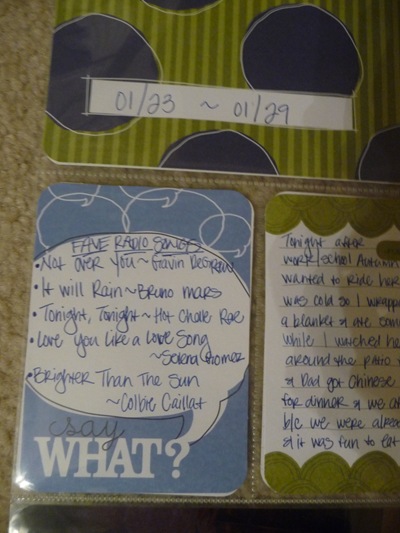 01/23 ~ 01/29
FAVE RADIO SONGS
• Not Over You ~ Gavin DeGraw
• It will Rain ~ Bruno Mars
• Tonight, Tonight ~ Hot Chelle Rae
• Love You Like a Love Song
~ Selena Gomez
• Brighter Than The Sun
~ Colbie Caillat
say
WHAT?
Tonight after
work/school Autumn
wanted to ride her
was cold so I wrapp
a blanket & ate
while I watched he
around the patio
& Dad got Chinese
for dinner & we
ble we were alrea
& it was fun to eat